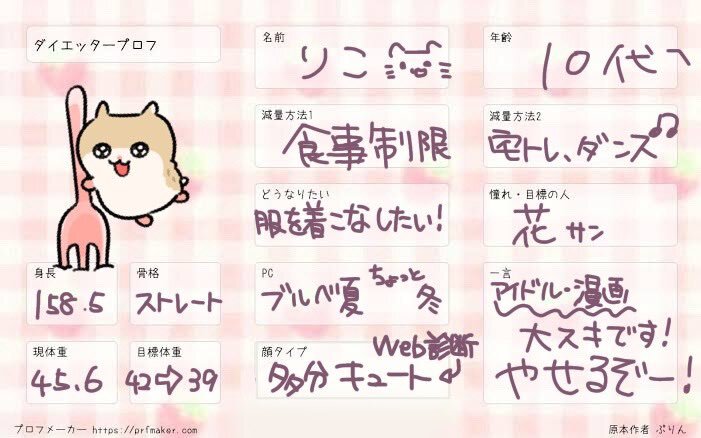 ダイエッタープロフ
名前
りこ
年齢
10代
減量方法1
食事制限
減量方法2
宅トレ、ダンス♫
どうなりたい
服を着こなしたい!
憧れ・目標の人
花サン
身長
158.5
骨格
ストレート
PC
ブルべ夏 ちょっと冬
一言
アイドル・漫画
大スキです!
やせるぞー!
現体重
45.6
目標体重
42⇨39
顔タイプ
Web診断
多分キュート
プロフメーカー https://prfmaker.com/
原本作者 ぷりん